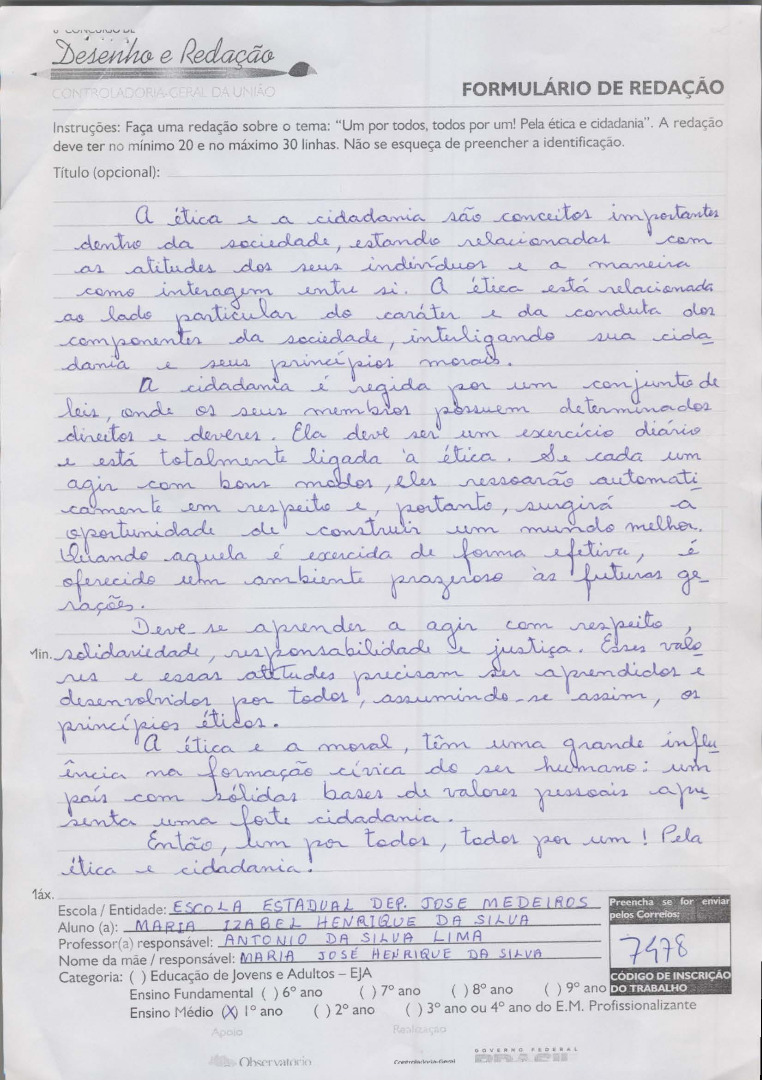 6º CONCURSO DE
Desenho e Redação
CONTROLADORIA-GERAL DA UNIÃO
FORMULÁRIO DE REDAÇÃO
Instruções: Faça uma redação sobre o tema: "Um por todos, todos por um! Pela ética e cidadania". A redação
deve ter no mínimo 20 e no máximo 30 linhas. Não se esqueça de preencher a identificação.
Título (opcional):
A ética e a cidadania são conceitos importantes
dentro da sociedade, estando relacionadas com
as atitudes dos seus indivíduos e a maneira
como interagem entre si. A ética está relacionada
ao lado particular do caráter e da conduta dos
componentes da sociedade, interligando sua cida
dania e seus princípios morais.
A cidadania é regida por um conjunto de
leis, onde os seus membros possuem determinados
direitos e deveres. Ela deve ser um exercício diário
e está totalmente ligada à ética. Se cada um
agir com bons modos, eles ressoarão automati
camente em respeito e, portanto, surgirá a
oportunidade de construir um mundo melhor.
Quando aquela é exercida de forma efetiva, é
oferecido um ambiente prazeroso às futuras ge
rações.
Deve-se aprender a agir com respeito,
1in. solidariedade, responsabilidade e justiça. Esses valo
res e essas atitudes precisam ser aprendidos e
desenvolvidos por todos, assumindo-se assim, os
princípios éticos.
A ética e a moral, têm uma grande influ
ência na formação cívica do ser humano: um
país com sólidas bases de valores pessoais apre
senta uma forte cidadania.
Então, um por todos, todos por um! Pela
ética e cidadania!
1áx.
Escola / Entidade: ESCOLA ESTADUAL DEP. JOSE MEDEIROS
Aluno (a): MARIA IZABEL HENRIQUE DA SILVA
Professor(a) responsável: ANTONIO DA SILVA LIMA
Nome da mãe / responsável: MARIA JOSÉ HENRIQUE DA SILVA
Categoria: ( ) Educação de Jovens e Adultos – EJA
Ensino Fundamental ( ) 6º ano ( ) 7º ano ( ) 8º ano ( ) 9º ano
Ensino Médio (X) 1º ano ( ) 2º ano ( ) 3º ano ou 4º ano do E.M. Profissionalizante
Preencha se for enviar
pelos Correios:
7478
CÓDIGO DE INSCRIÇÃO
DO TRABALHO
Apoio
Realização
Observatório
Controladoria-Geral
GOVERNO FEDERAL
BRASIL